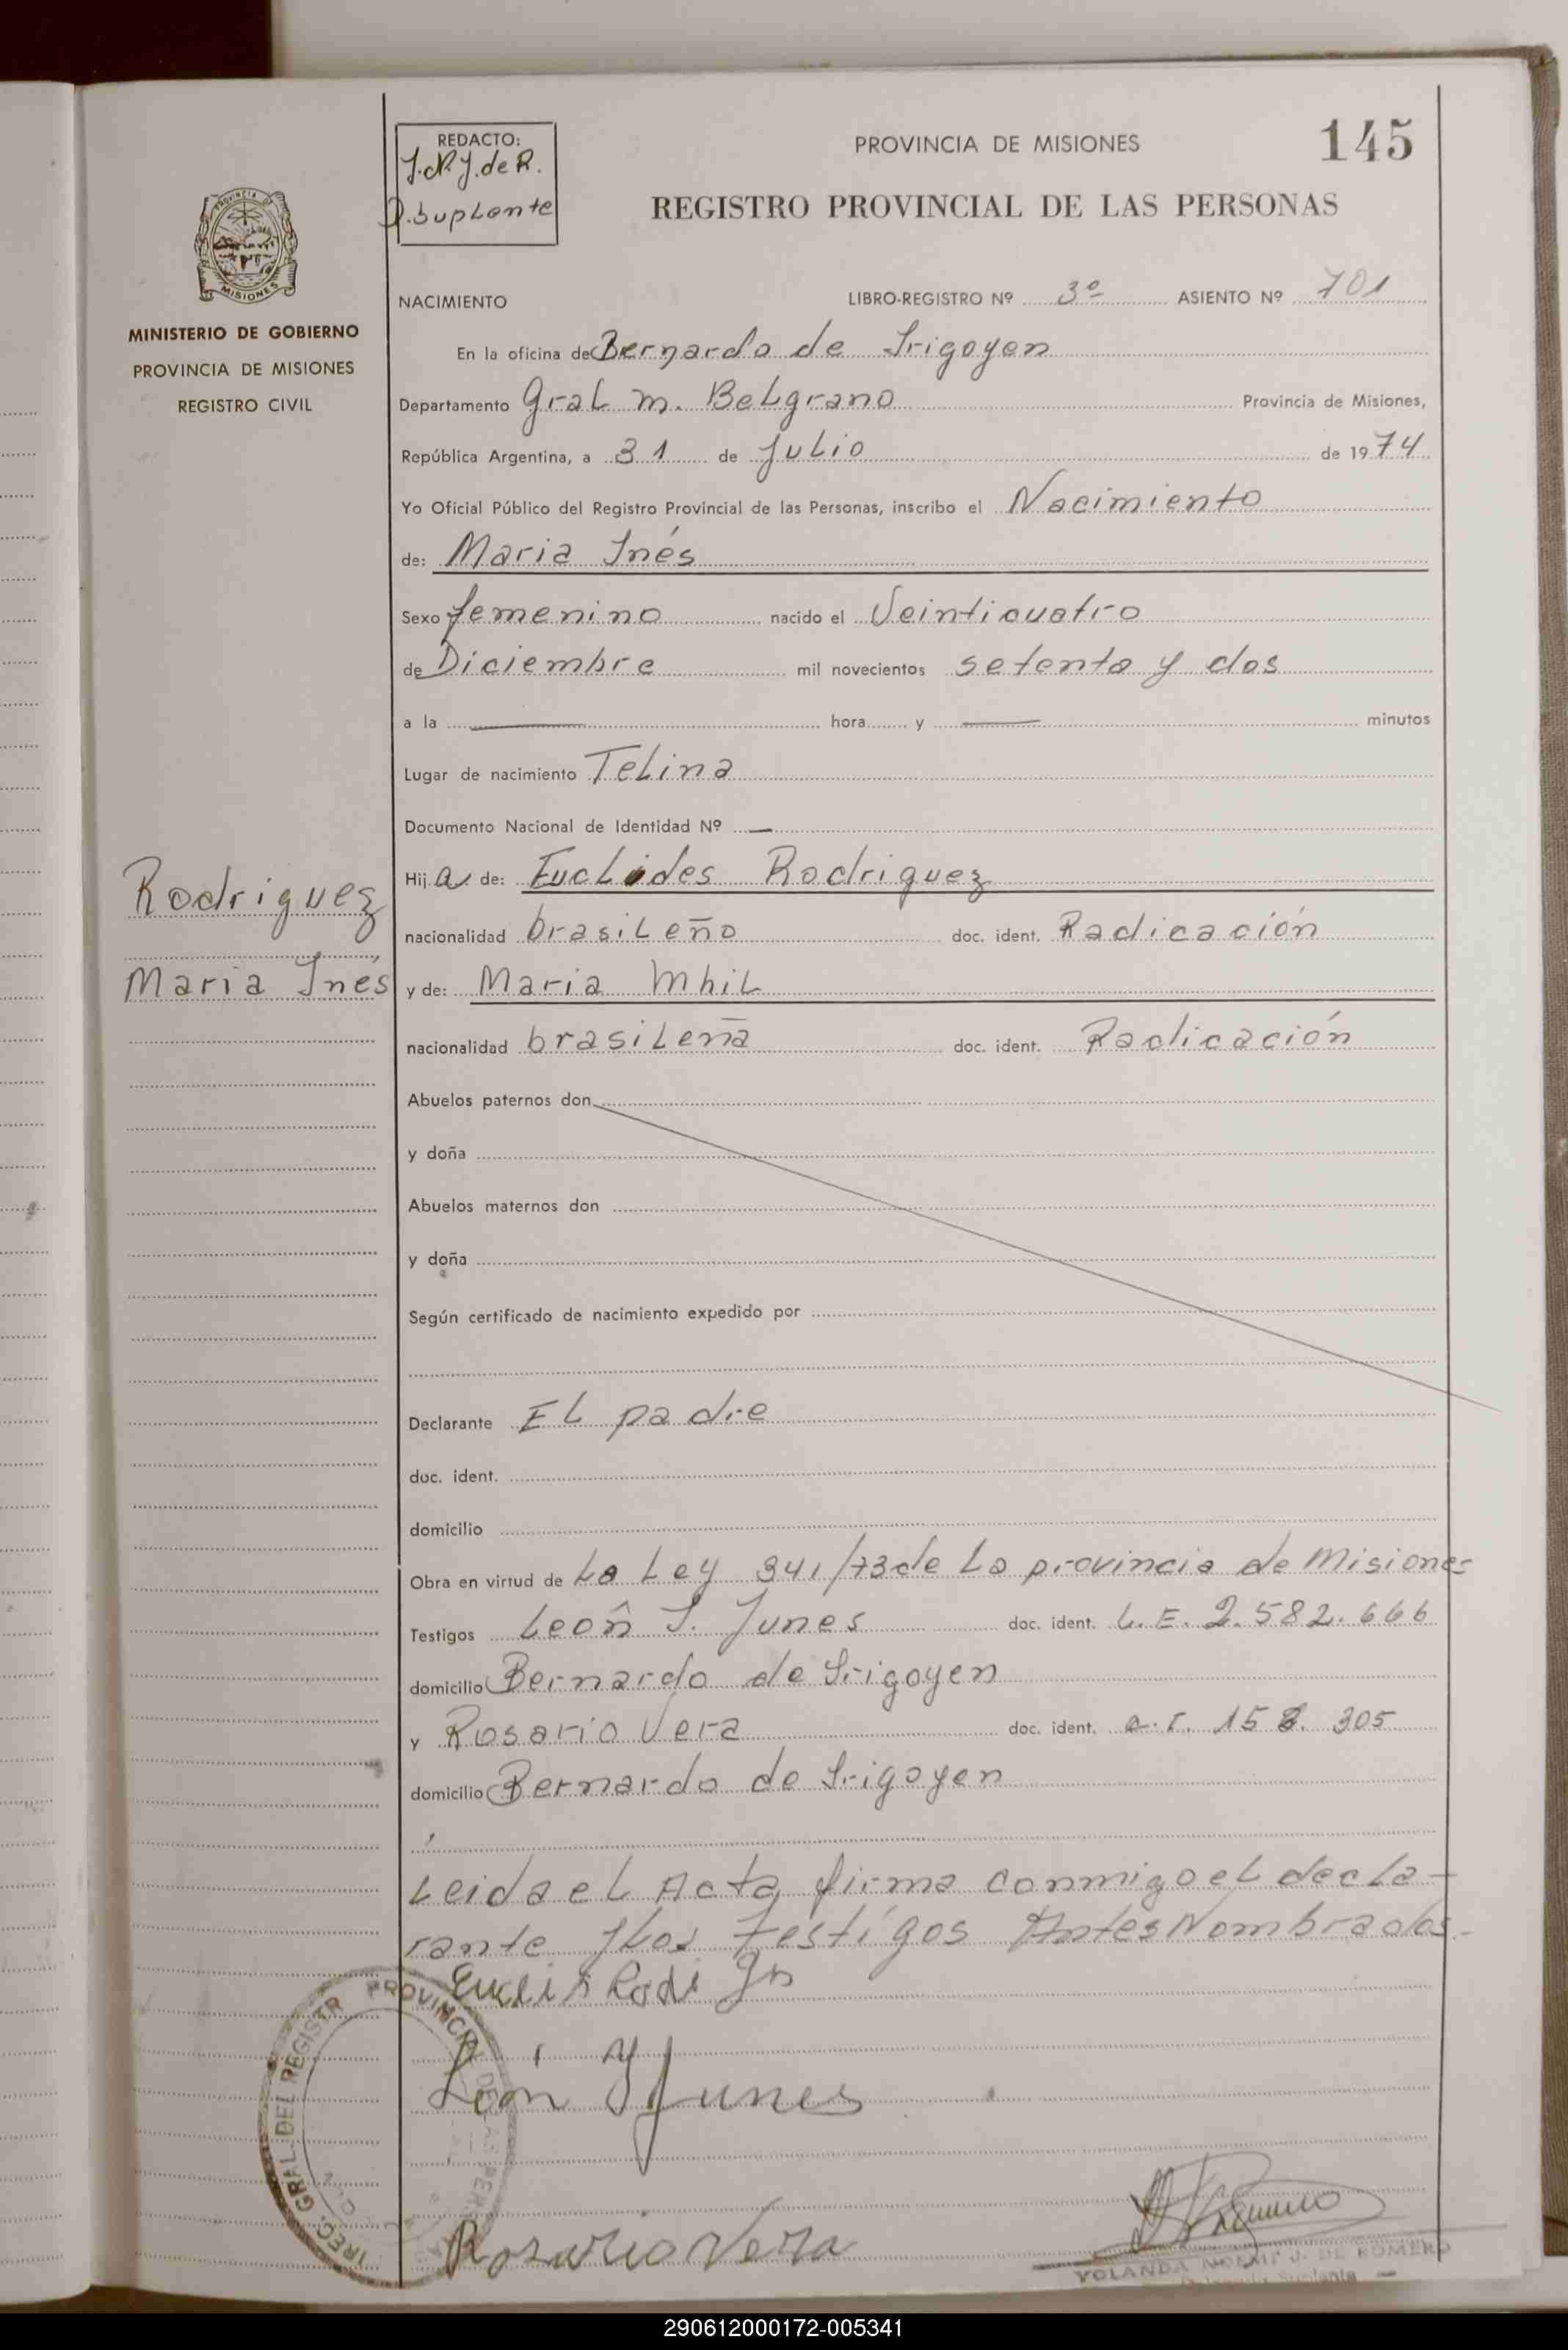 145
REDACTO:
D. Suplente
PROVINCIA DE MISIONES
REGISTRO PROVINCIAL DE LAS PERSONAS
PROVINCIA DE
MISIONES
MINISTERIO DE GOBIERNO
PROVINCIA DE MISIONES
REGISTRO CIVIL
NACIMIENTO LIBRO-REGISTRO Nº 3º ASIENTO Nº 701
En la oficina de Bernardo de Irigoyen
Departamento Gral M. Belgrano Provincia de Misiones,
República Argentina, a 31 de Julio de 1974
Yo Oficial Público del Registro Provincial de las Personas, inscribo el Nacimiento
de: Maria Inés
Sexo femenino nacido el Veinticuatro
de Diciembre mil novecientos setenta y dos
a la — hora y — minutos
Lugar de nacimiento Telina
Documento Nacional de Identidad Nº —
Rodriguez
Maria Inés
Hija de: Euclides Rodriguez
nacionalidad brasileño doc. ident. Radicación
y de: Maria Mhil
nacionalidad brasileña doc. ident. Radicación
Abuelos paternos don
y doña
Abuelos maternos don
y doña
Según certificado de nacimiento expedido por
Declarante El padre
doc. ident.
domicilio
Obra en virtud de La Ley 341/73 de La provincia de Misiones
Testigos León I. Junes doc. ident. L.E. 2.582.666
domicilio Bernardo de Irigoyen
y Rosario Vera doc. ident. 305
domicilio Bernardo de Irigoyen
Leida el Acta, firma conmigo el decla-
rante y Los Testigos Antes Nombrados.-
León Y Junes
Rosario Vera
DIREC. GRAL. DEL REGISTRO PROVINCIAL DE LAS PERSONAS
YOLANDA NOEMI J. DE ROMERO
Suplente
290612000172-005341